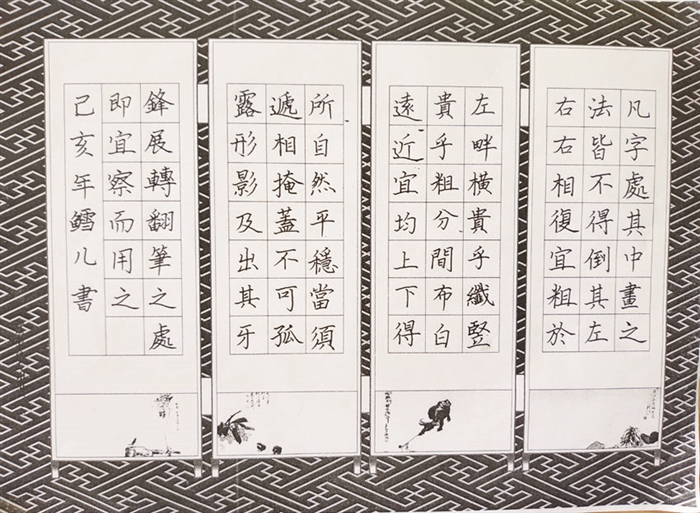 凡字處其中畫之
法皆不得倒其左
右右相復宜粗於
左畔橫貴乎纖竪
貴乎粗分間布白
遠近宜均上下得
所自然平穩當須
遞相掩蓋不可孤
露形影及出其牙
鋒展轉翻筆之處
即宜察而用之
己亥年鱈儿書